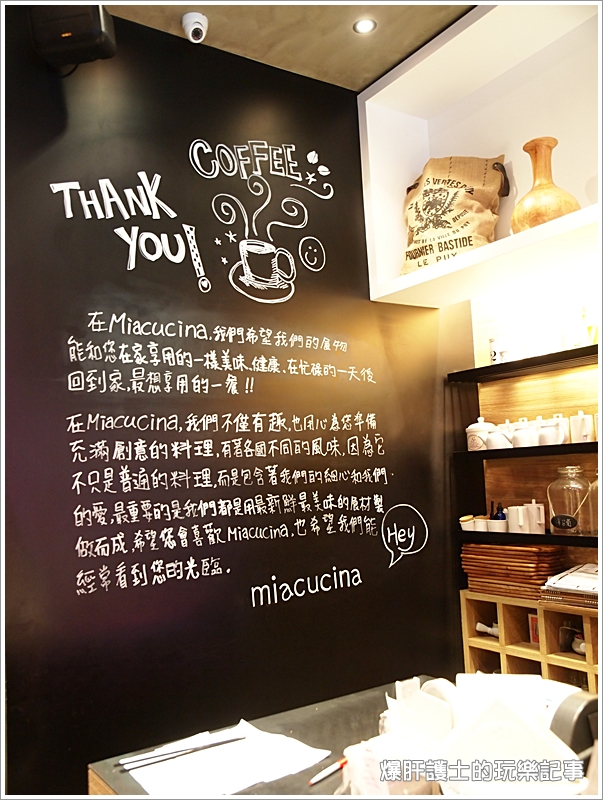 COFFEE
THANK
YOU!
在Miacucina,我們希望我們的食物
能和您在家享用的一樣美味、健康、在忙碌的一天後
回到家,最想享用的一餐!!
在Miacucina,我們不僅有趣,也用心為您準備
充滿創意的料理,有著各國不同的風味,因為它
不只是普通的料理,而是包含著我們的細心和我們
的愛,最重要的是我們都是用最新鮮最美味的食材製
做而成,希望您會喜歡Miacucina,也希望我們能
經常看到您的光臨.
Hey
miacucina
FOURNIER BASTIDE
LE PUY
爆肝護士的玩樂記事